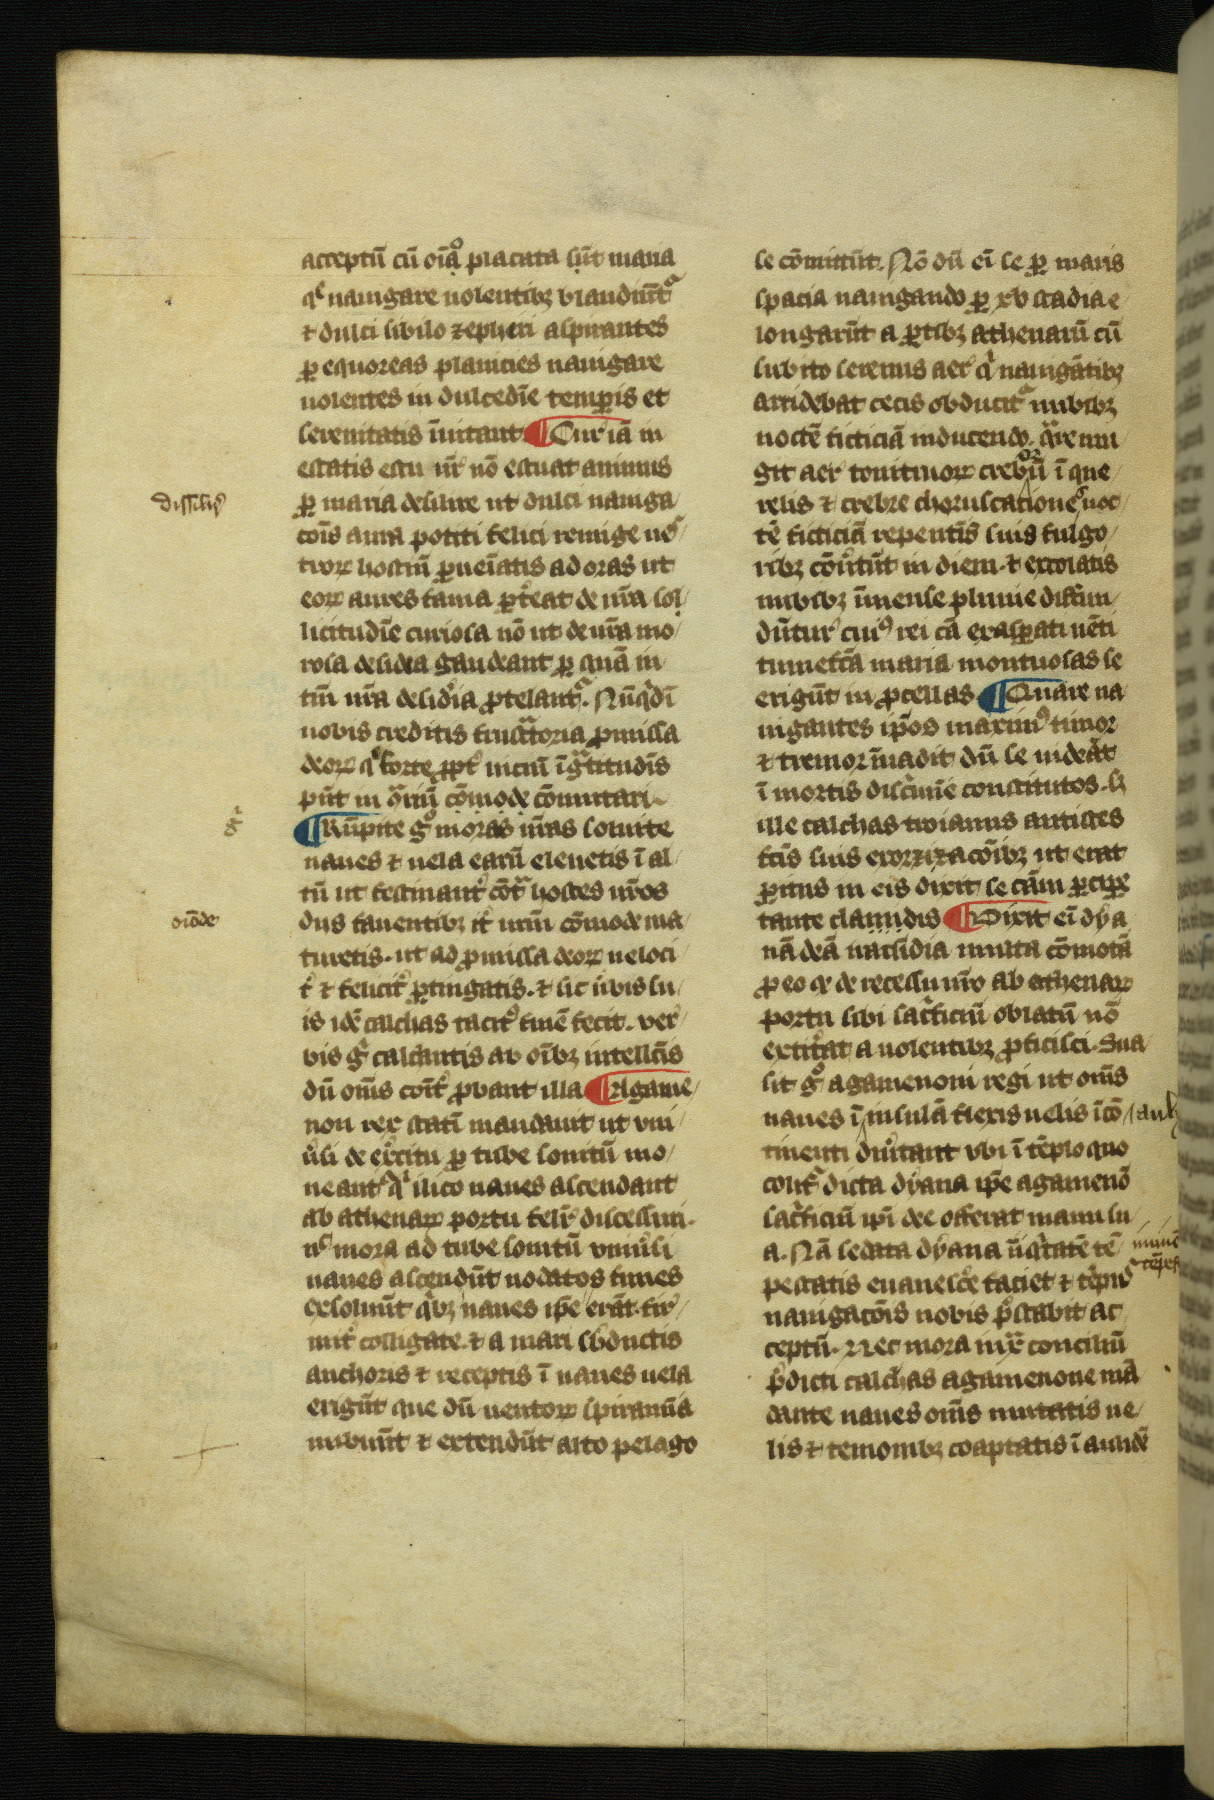 acceptū cū oīaͦ placata sūt maria
qͥ nauigare uolentibꝫ blandiūtᷓ
⁊ dulci sibilo zepheri aspirantes
ꝑ equoreas planicies nauigare
uolentes in dulcedīe temꝑis et
serenitatis īuitant ¶ Cur iā in
estatis estu nr̄ nō estuat animus
ꝑ maria desilire ut dulci nauiga
cōis aura potiti felici remige ue/
troꝝ hostiū ꝑueīatis ad oras ut
eoꝝ aures fama ꝑt̄eat de nr̄a sol/
licitudīe curiosa nō ut de nr̄a mo/
rosa desidia gaudeant ꝑ quā in
tm̄ nr̄a desidia ꝓtelantᷓ. Nūqͥdī
uobis creditis frustᷓtoria ꝓmissa
deoꝝ qͥ forte ꝓpt̄ uiciū īgᷓtitudīs
pn̄t in ꝯͣriū cōmode cōmutari
¶ Rūpite gͦ moras nr̄as soluite
naues ⁊ uela earū eleuetis ī al/
tū ut festinant̄ cōtᷓ hostes nr̄os
dus fauentibꝫ it̄ nr̄m cōmode ma/
turetis. ut ad ꝓmissa deoꝝ ueloci
t̄ ⁊ felicit̄ ꝑtingatis. ⁊ sic ūbis su/
is idē calchas tacitꝰ finē fecit. ver/
bis gͥ calcantis ab oībꝫ intellc̄is
dū om̄s coīt̄ ꝓbant illa ¶ Agame/
non rex statī mandauit ut vni
ūsi de ex̄citu ꝑ tube sonitū mo/
neantᷓ qͥ ilico naues ascendant
ab athenaꝝ portu felr̄ discessuri.
nͨ mora ad tube sonitū vniūsi
naues ascendūt nodatos funes
exsoluūt qͥbꝫ naues ip̄e erāt fir/
mit̄ colligate. ⁊ a mari sb̄ductis
anchoris ⁊ receptis ī naues uela
erigūt que dū uentoꝝ spiramīa
imbuūt ⁊ extendūt alto pelago
dissiliꝰ
gͥ
oīode
se cōmittūt. Nō dū eī se ꝑ maris
spacia nauigando ꝑ xv stadia e
longarūt a ꝑtibꝫ athenarū cū
subito serenus aer qͥ nauigātibꝫ
arridebat cecis obducitᷓ nubibꝫ
noctē ficticiā inducendo. qͣre mu
git aer tonitruoꝝ crebꝝū ī que/
relis ⁊ crebre choruscationeˢ noc/
tē ficticiā repentīs suis fulgo/
ribꝫ cōūtūt in diem. ⁊ excolatis
nubibꝫ īmense pluuie diffun/
dūtur cuiꝰ rei cā exasꝑati uēti
tumefc̄a maria montuosas se
erigūt in ꝓcellas ¶ Quare na
uigantes ip̄os maximꝰ timor
⁊ tremor īuadit dū se uideāt
ī mortis discͥmīe constitutos. sꝫ
ille calchas troianus antistes
fretis suis exorzizacōibꝫ ut erat
ꝑitus in eis dixit se cām ꝑcipe
tante clamidis ¶ Dixit eī dya
nā deā nausidia multa cōmotā
ꝓ eo qͥ de recessu nr̄o ab athenaꝝ
portu sibi sacͥficiū oblatū nō
extit̄at a uolentibꝫ ꝓficisci. Sua/
sit gͦ agamenoni regi ut om̄s
naues ī insulā flexis uelis īcō/
tinenti diūtant vbi ī tēplo quo
coīt̄ dicta dyana ip̄e agamenō
sacͥficiū ip̄i dee offerat manu su
a. Nā sedata dyana īiqͥtatē tē
pestatis euanesc̄e faciet ⁊ tēpuˢ
nauigacōis nobis p̄stabit ac
ceptū. Nec mora iuxͣ conciliū
p̄dicti calchas agamenone mā
dante naues om̄s mutatis ue/
lis ⁊ temonibꝫ coaptatis ī aulidē
aul